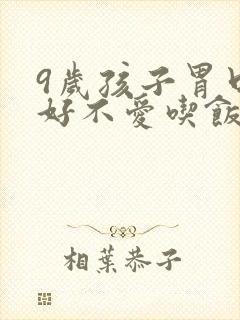 9歲孩子胃口
好不愛喫飯
相葉恭子